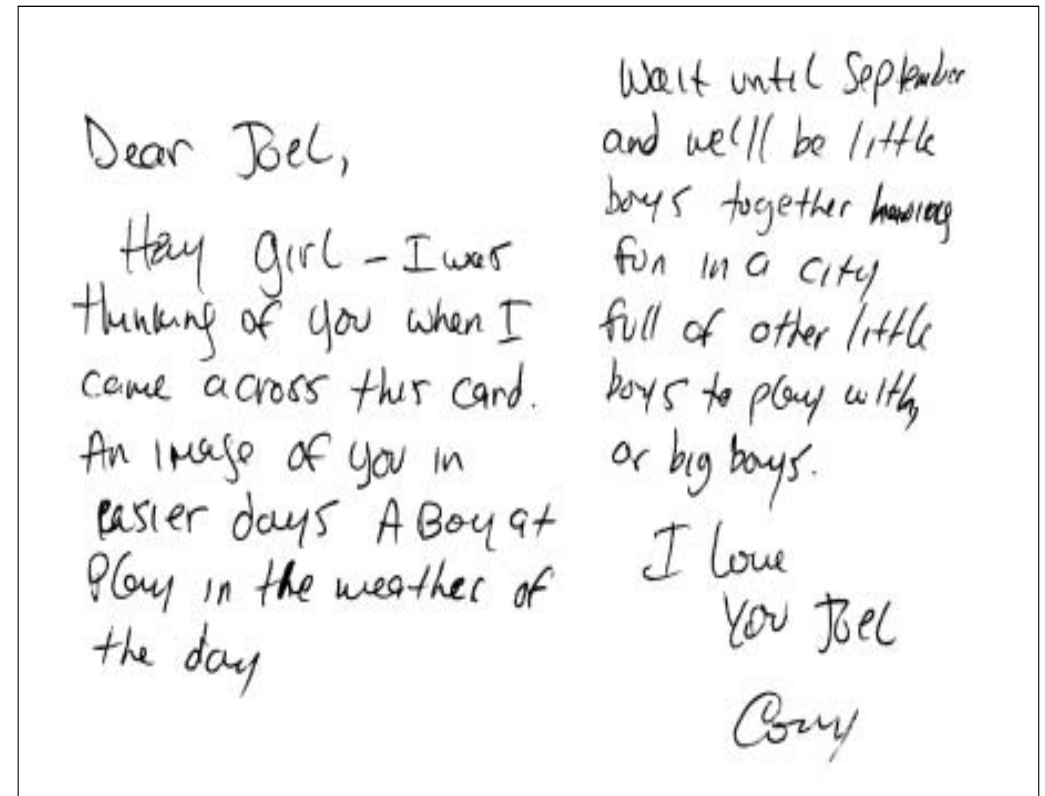 Dear Joel,
Hay girl – I was
thinking of you when I
came across this card.
An image of you in
easier days A Boy at
Play in the weather of
the day
Wait until September
and we'll be little
boys together having
fun in a city
full of other little
boys to play with,
or big boys.
I love
you Joel
Cory